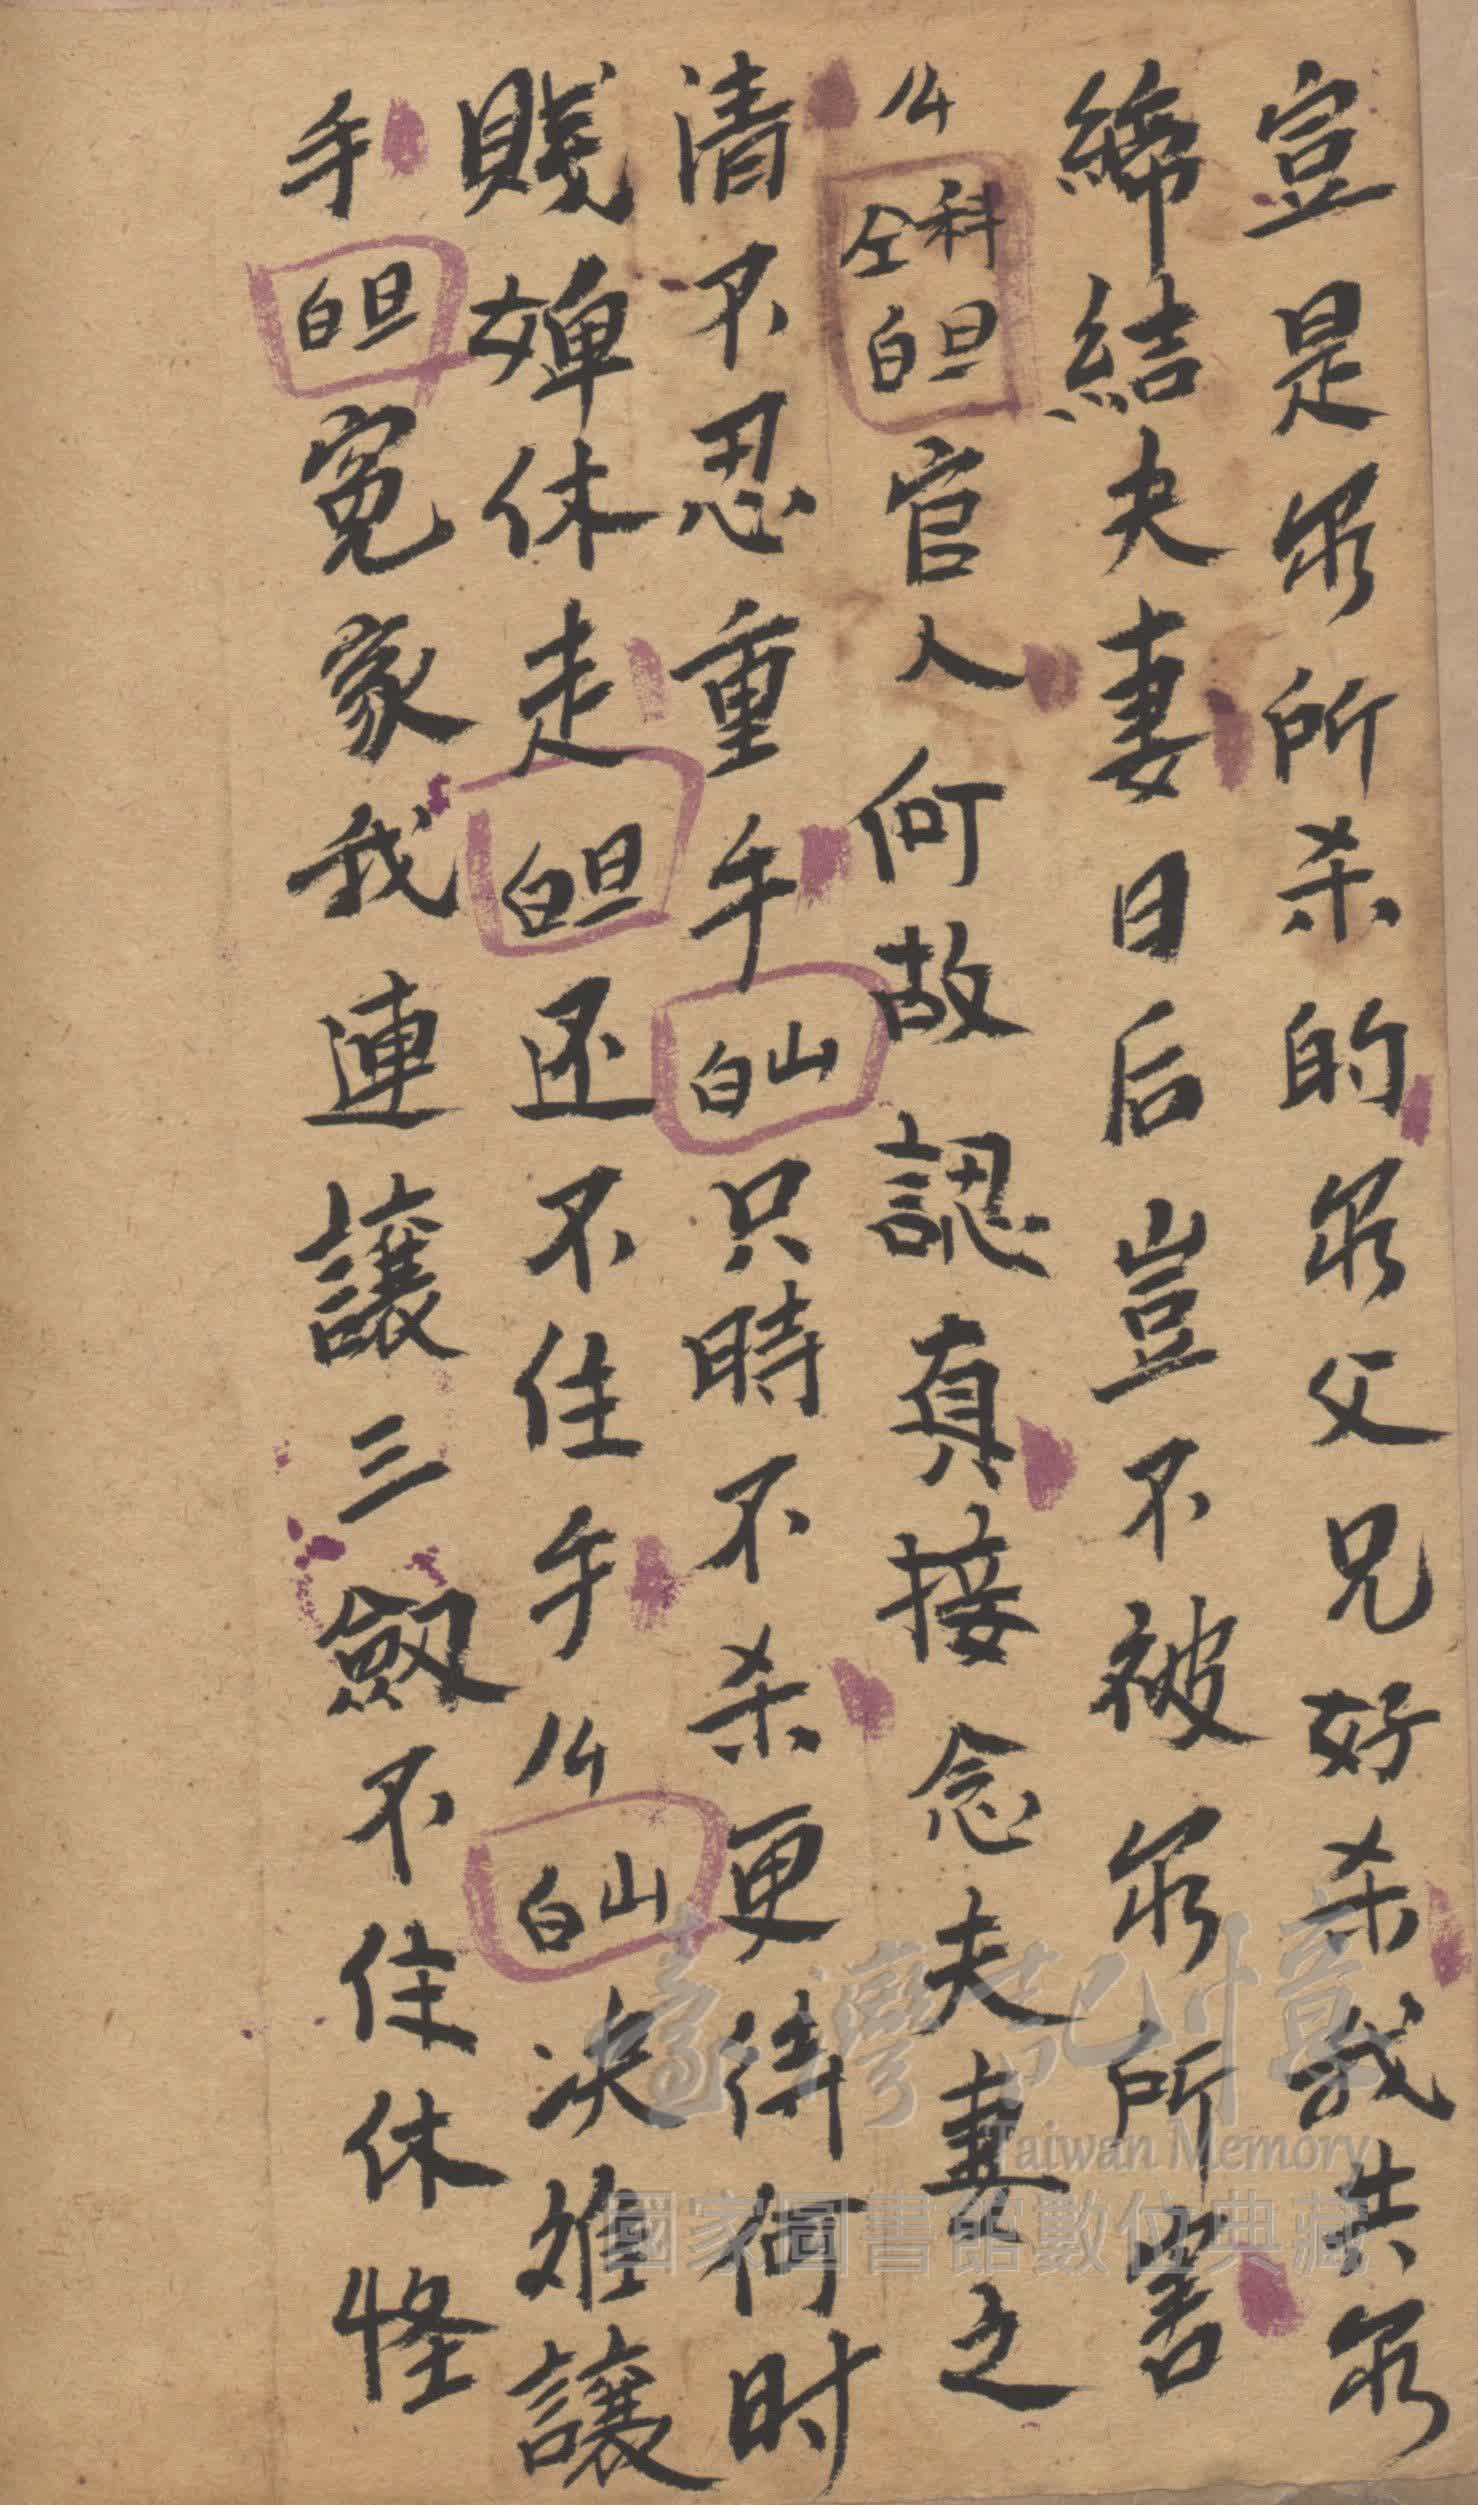 豈是尔所杀的尔父兄好杀我共尔
締結夫妻日后豈不被尔所害
科仝旦白官人何故認真接念夫妻之
清不忍重手山白只時不杀更待何时
賤婢休走旦白还不住手山白决难讓
手旦白冤家我連讓三劔不住休怪
臺灣記憶
Taiwan Memory
國家圖書館數位典藏